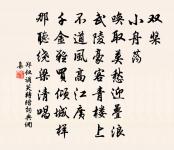 双桨
小舟荡
唤取莫愁迎叠浪
武陵豪客青楼上
不道风高江广
千金难买倾城样
那听绕梁清唱